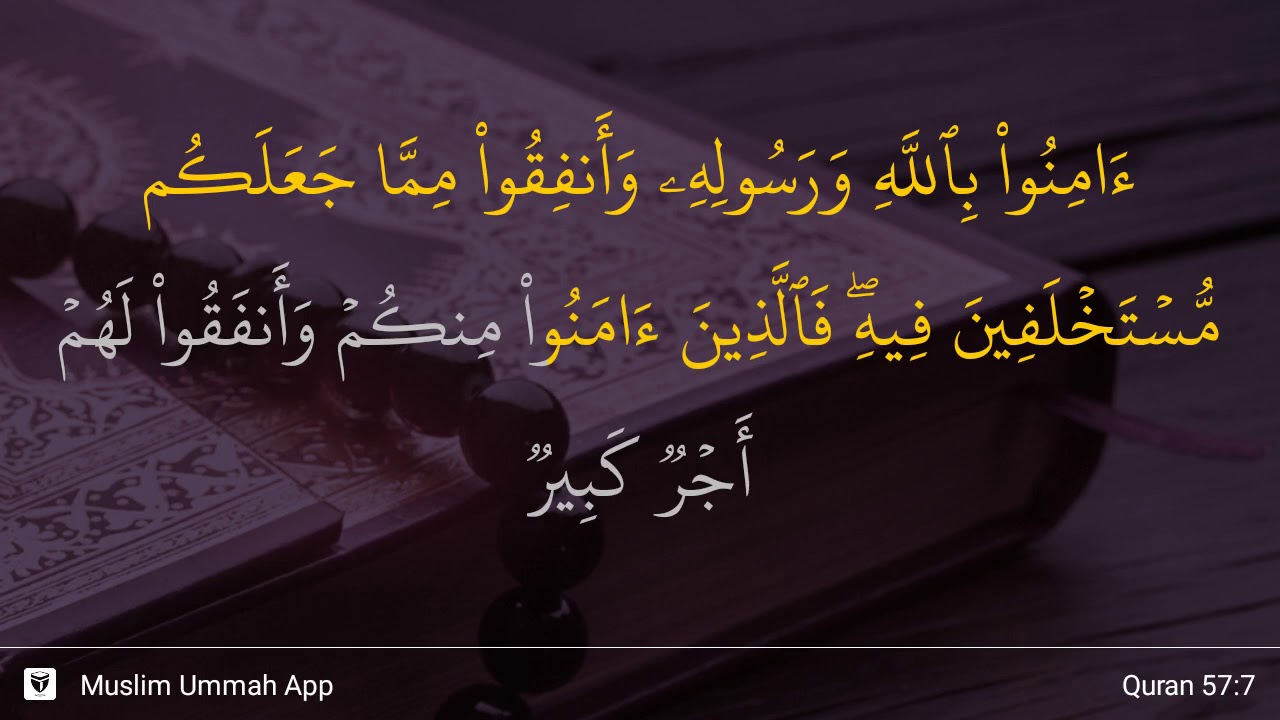 ءَامِنُوا۟ بِٱللَّهِ وَرَسُولِهِۦ وَأَنفِقُوا۟ مِمَّا جَعَلَكُم
مُّسْتَخْلَفِينَ فِيهِ ۖ فَٱلَّذِينَ ءَامَنُوا۟ مِنكُمْ وَأَنفَقُوا۟ لَهُمْ
أَجْرٌ كَبِيرٌ
Muslim Ummah App
Quran 57:7